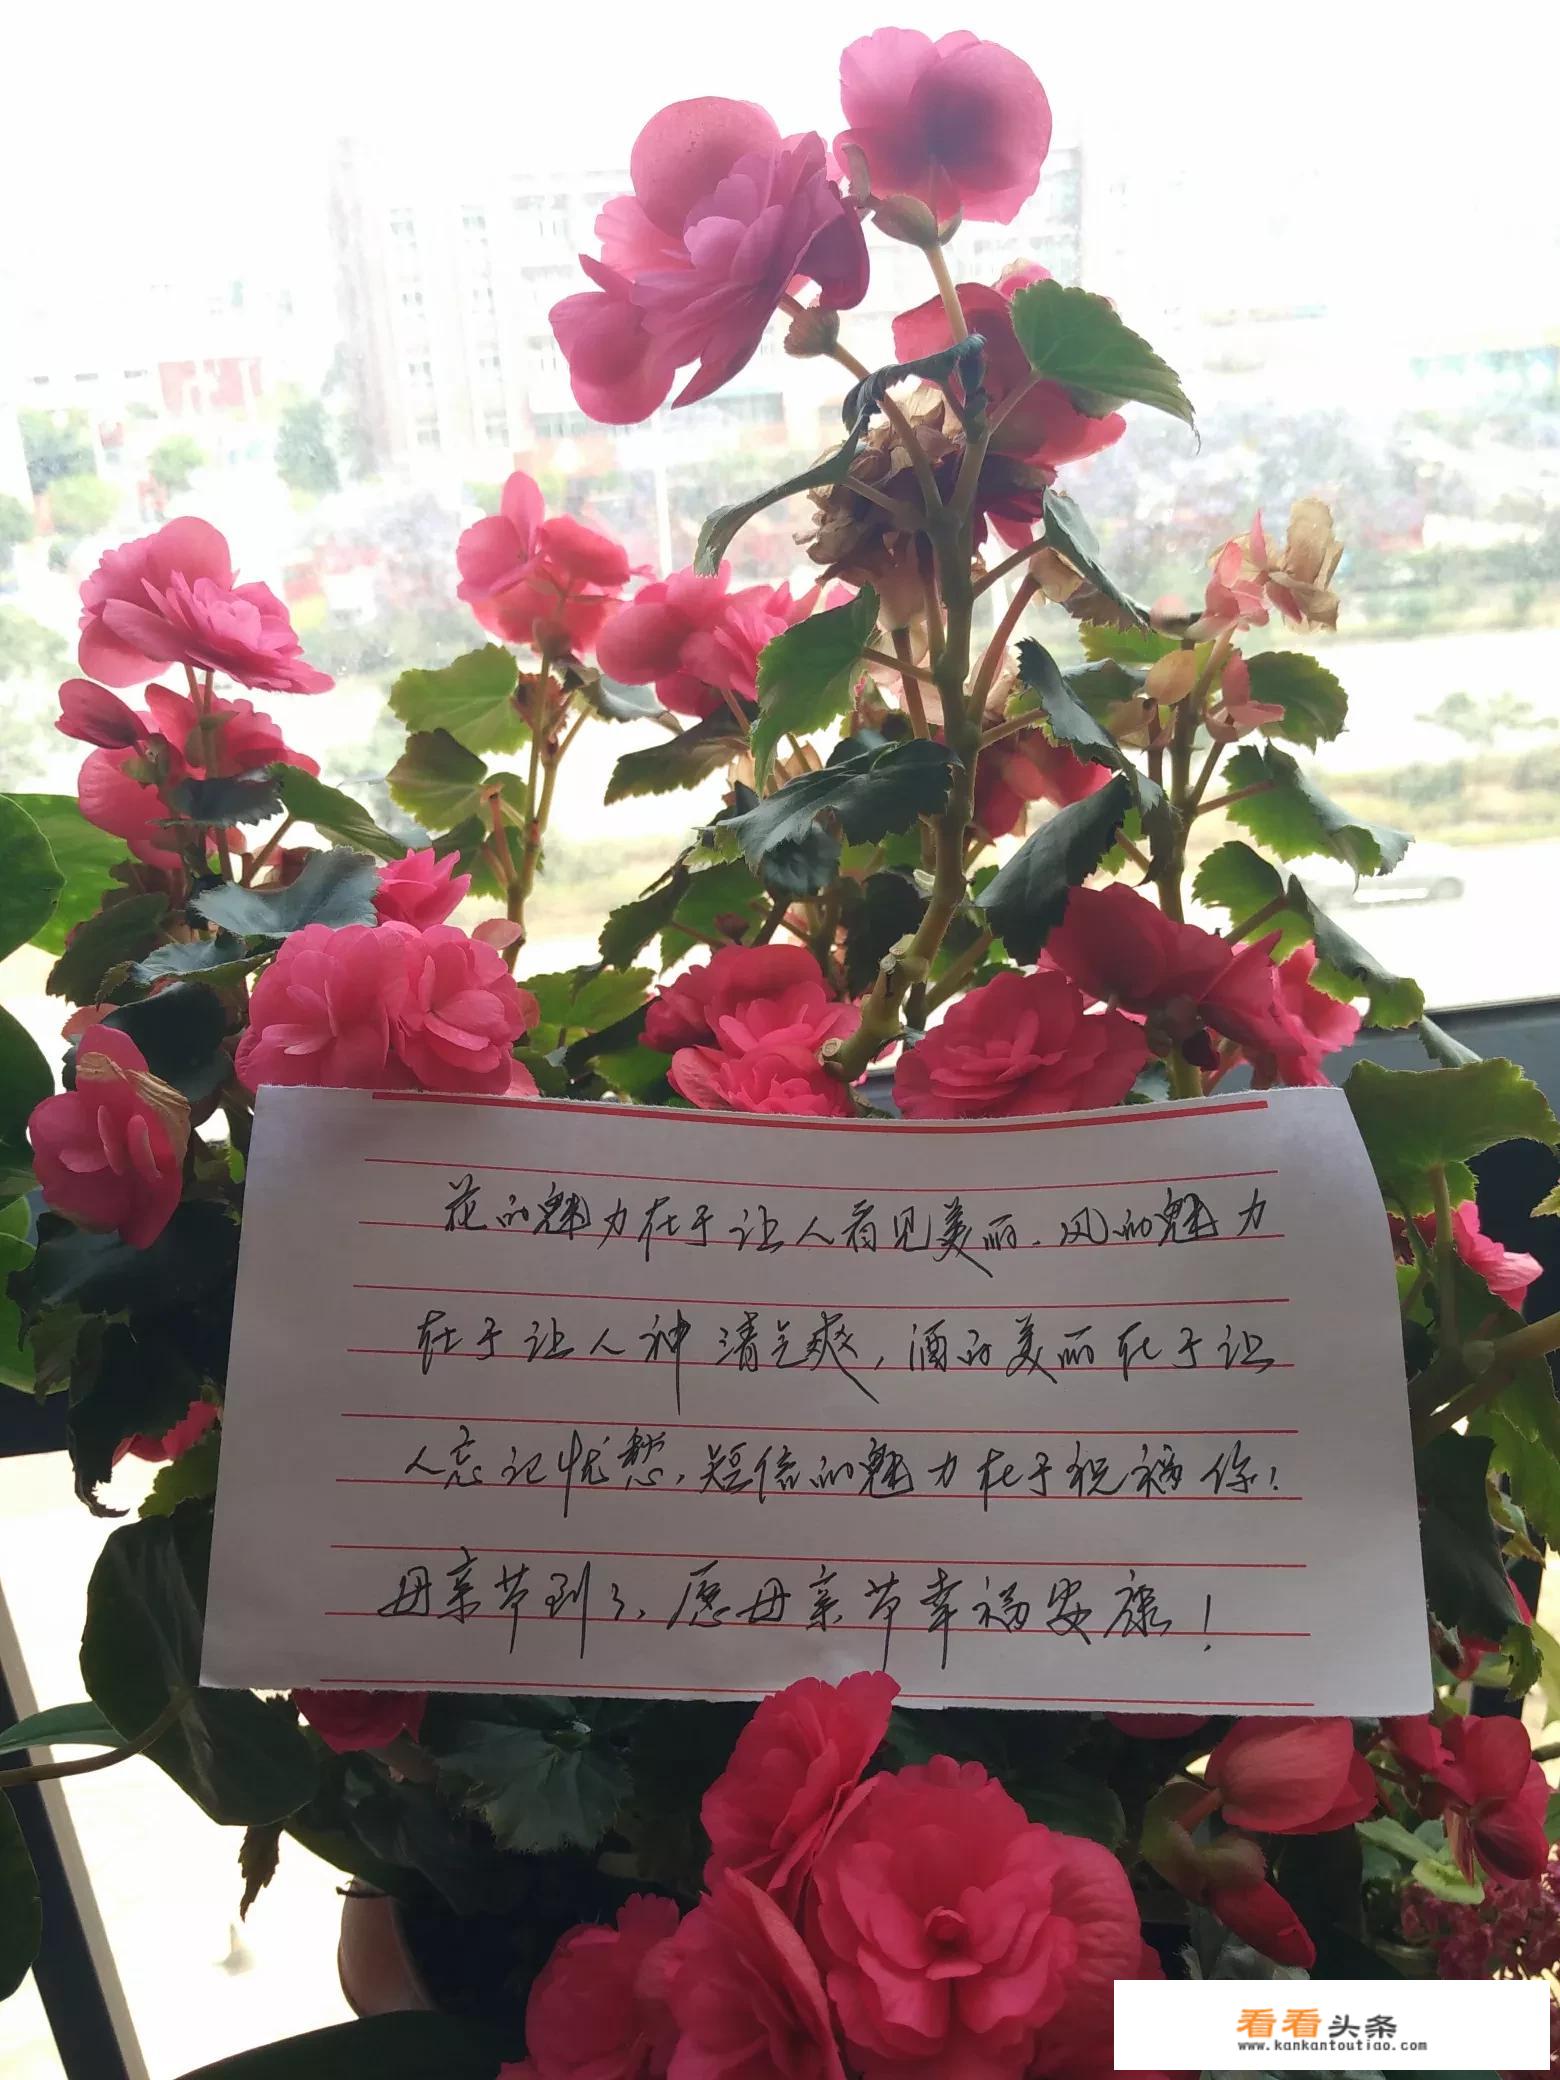 花的魅力在于让人看见美丽，风的魅力
在于让人神清气爽，酒的美丽在于让
人忘记忧愁，短信的魅力在于祝福你！
母亲节到了，愿母亲节幸福安康！
看看头条
www.kankantoutiao.com